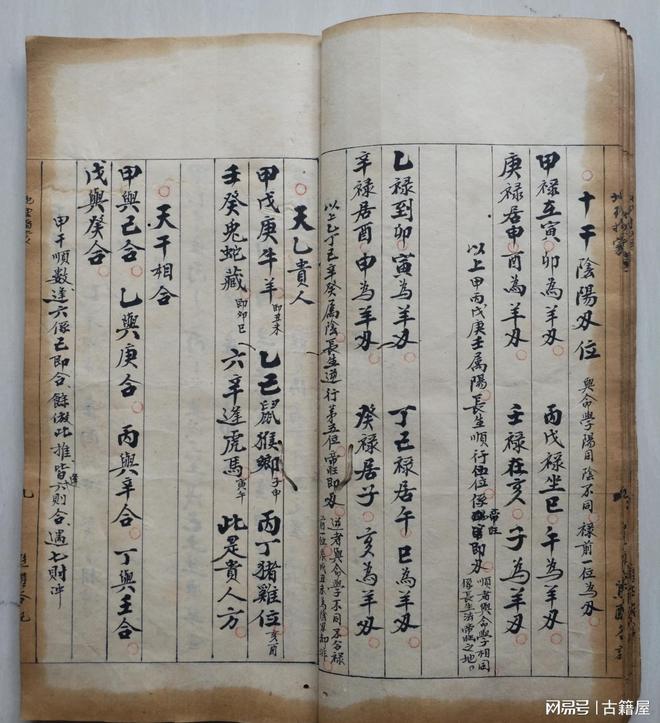 十干陰陽刃位 與命學陽同陰不同 祿前一位為刃
甲祿在寅卯為羊刃 丙戊祿坐巳午為羊刃
庚祿居申酉為羊刃 壬祿在亥子為羊刃
以上甲丙戊庚壬属陽長生順行五位係帝旺即刃 順者與命學相同係長生法帝旺之地
乙祿到卯寅為羊刃 丁己祿居午巳為羊刃
辛祿居酉申為羊刃 癸祿居子亥為羊刃
以上乙丁己辛癸属陰長生逆行第五位帝旺即刃 逆者與命學不同
天乙貴人
甲戊庚牛羊即丑未 乙己鼠猴鄉子申 丙丁豬雞位亥酉
壬癸兔蛇藏即卯巳 六辛逢虎馬寅午 此是貴人方
天干相合
甲與己合 乙與庚合 丙與辛合 丁與壬合
戊與癸合
甲干順数逢六係己即合餘倣此推皆逢六則合遇七則冲
网易号 | 古籍屋